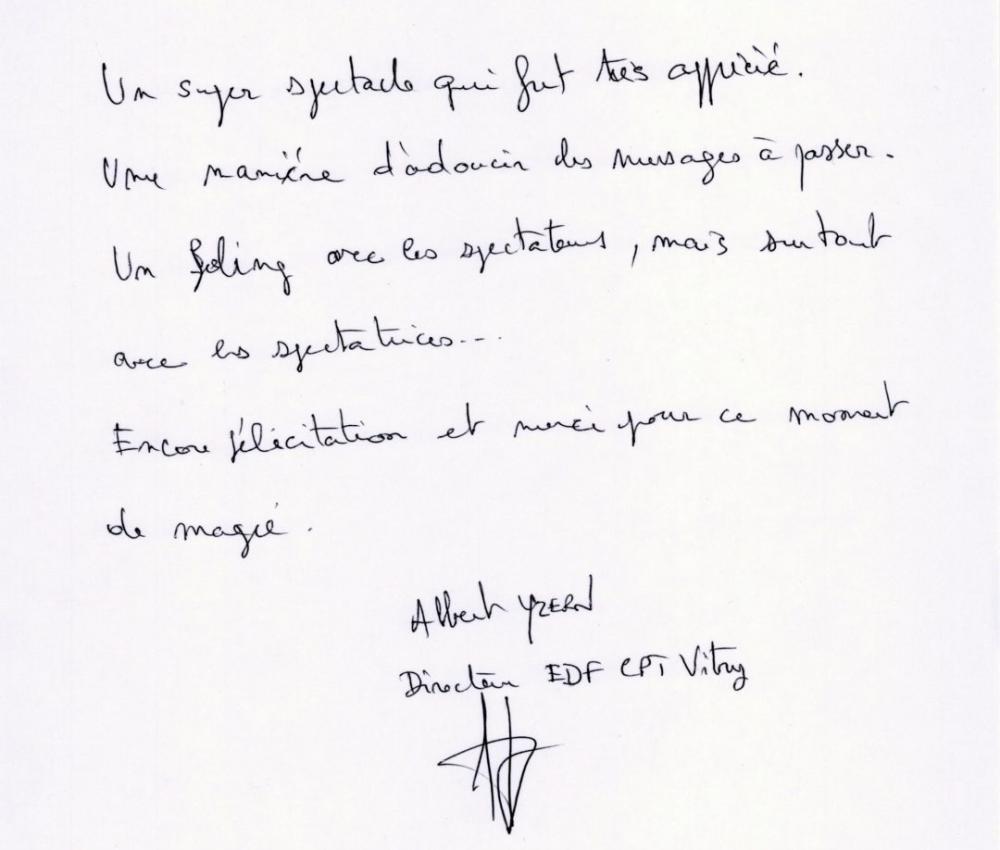 Un super spectacle qui fut très apprécié.
Une manière d'adoucir des messages à passer.
Un feeling avec les spectateurs, mais surtout
avec les spectatrices...
Encore félicitation et merci pour ce moment
de magie.
Albert YZERN
Directeur EDF CPT Vitry